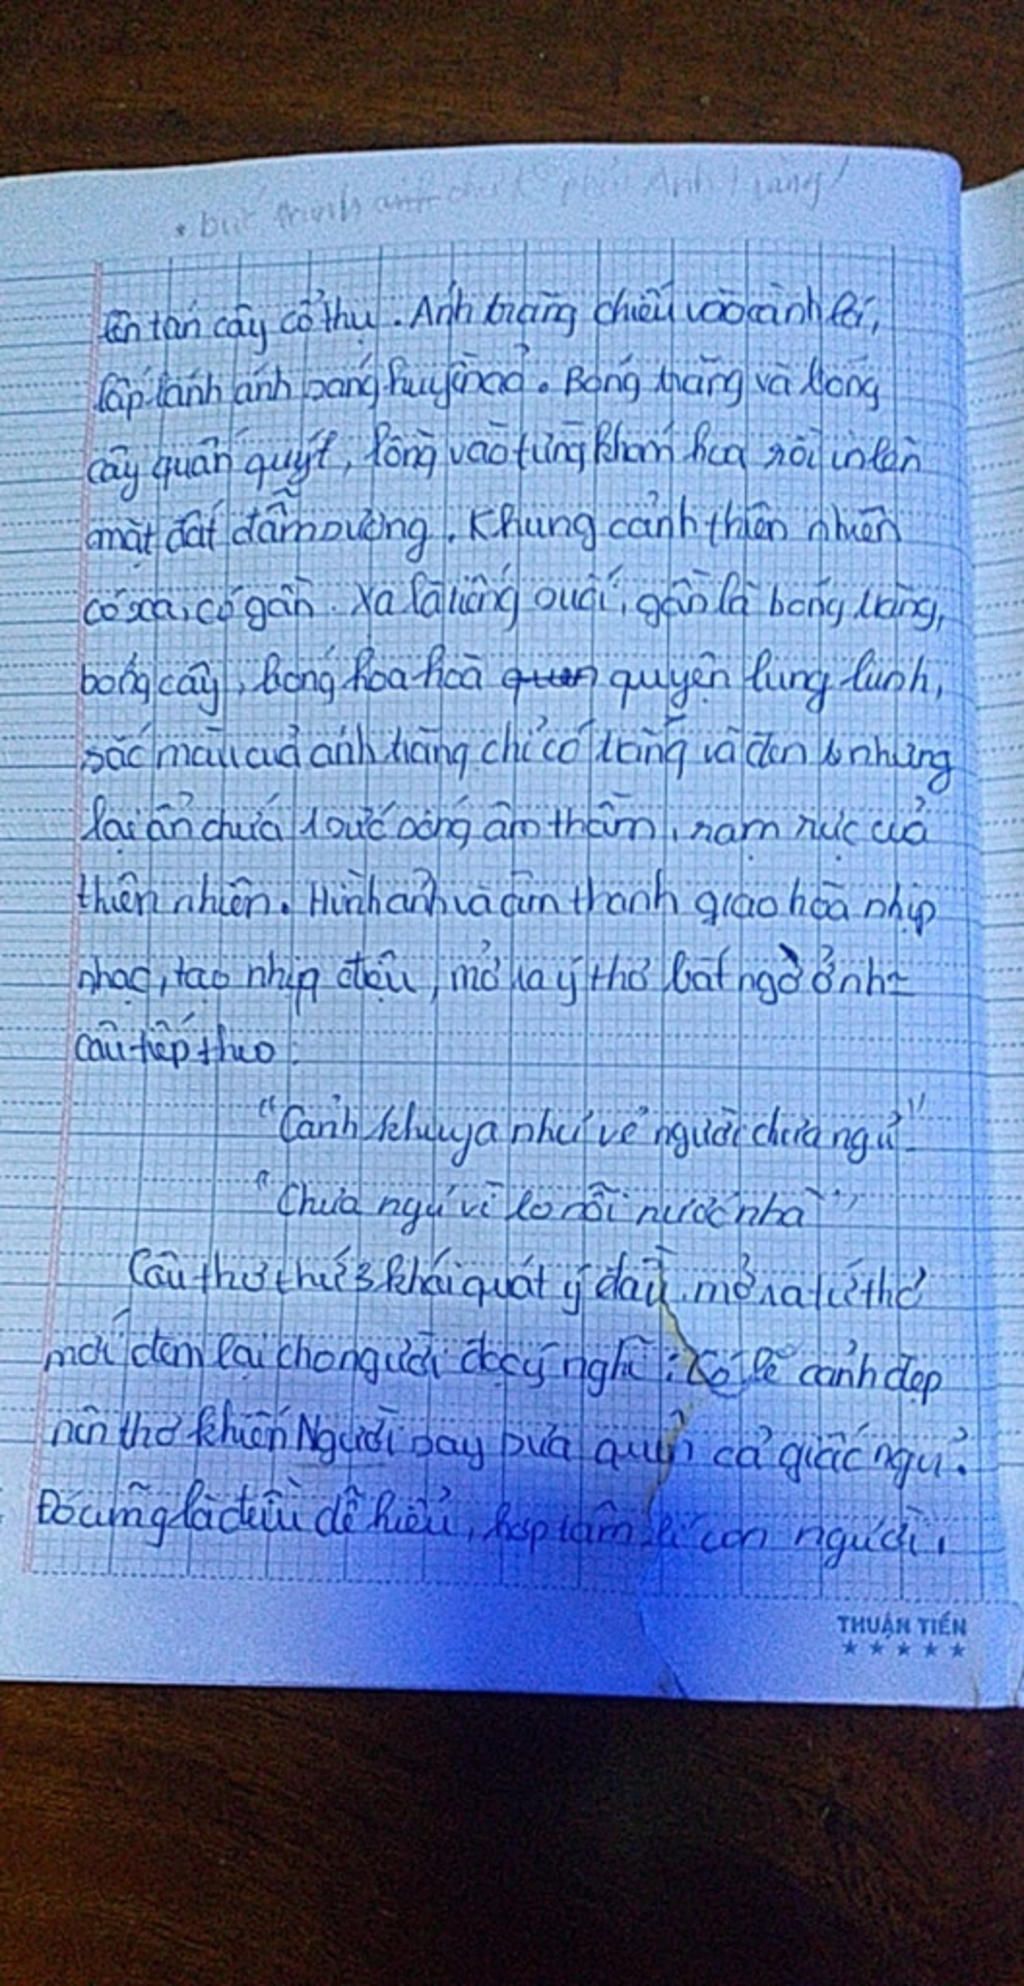 lên tán cây cổ thụ. Ánh trăng chiếu vào cành lá,
lấp lánh ánh sáng huyền ảo. Bóng trăng và bóng
cây quấn quýt, lồng vào từng khóm hoa rồi in lên
mặt đất đẫm sương. Khung cảnh thiên nhiên
có xa, có gần. Xa là tiếng suối, gần là bóng trăng,
bóng cây, bóng hoa hoà quen quyện lung linh,
sắc màu cuả ánh trăng chỉ có trắng và đen nhưng
lại ẩn chứa sức sống âm thầm, rạo rực cuả
thiên nhiên. Hình ảnh và âm thanh giao hoà nhịp
nhạc, tạo nhịp điệu, mở ra ý thơ bất ngờ ở
câu tiếp theo:
"Cảnh khuya như vẽ người chưa ngủ"
"Chưa ngủ vì lo nỗi nước nhà"
Câu thơ thứ 3 khái quát ý đầu mở ra tứ thơ
mới đem lại cho người đọc ý nghĩ: Có lẽ cảnh đẹp
nên thơ khiến Người say sưa quên cả giấc ngủ.
Đó cũng là điều dễ hiểu, hợp tâm lí con người,
THUẬN TIẾN